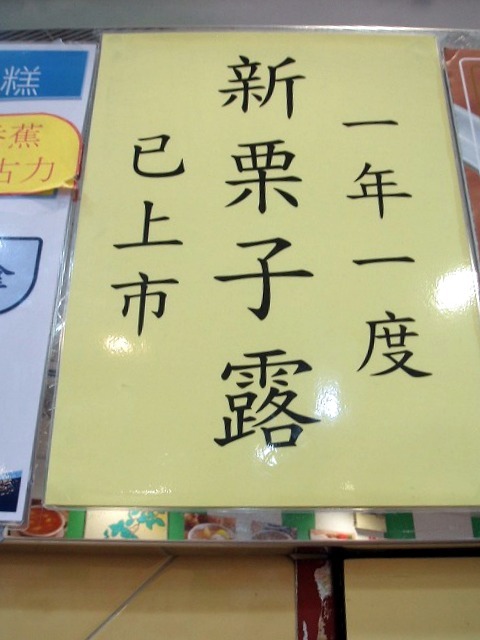 一年一度
新栗子露
已上市
糕
香蕉
古力